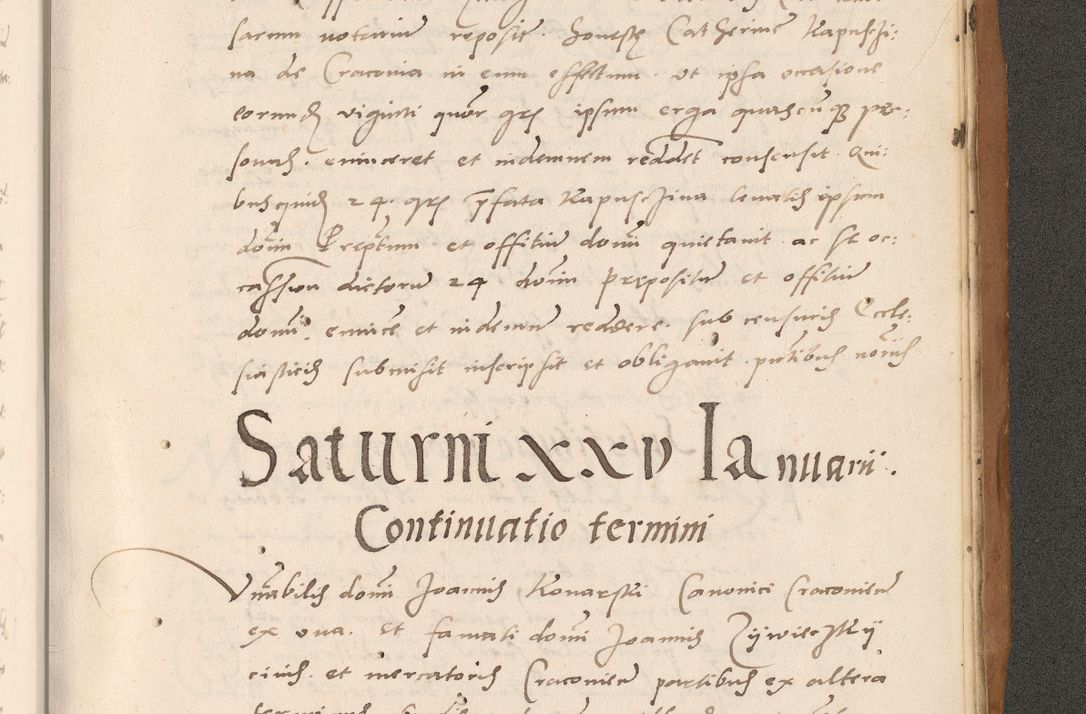 sarum notarium reposit. Honeste Catherine Kapusči:
na de Cracovia in eum effectum. ut ipsa occasione
eorundem viginti quatuor grs ipsum erga quascunque per:
sonas. eminceret et indemnem reddet consensit. Qui:
busquidem 24. grs prefata Kapusczina levatis ipsum
domin Preptum et offitiu domi quietavit ac se oc:
cassion dictoru 24 domin Prepositu et offitiu
domi. emince et indemne reddere. sub censuris Eccle:
siasticis submisit inscripsit et obligavit. prtibus noriis
Saturni xxv Ianuarii.
Continuatio termini
Vnabilis domi Joannis Konarski Canonici Cracovien
ex una. et famati domi Joannis Zijwieczkij
civis. et mercatoris Cracovien partibus ex altera